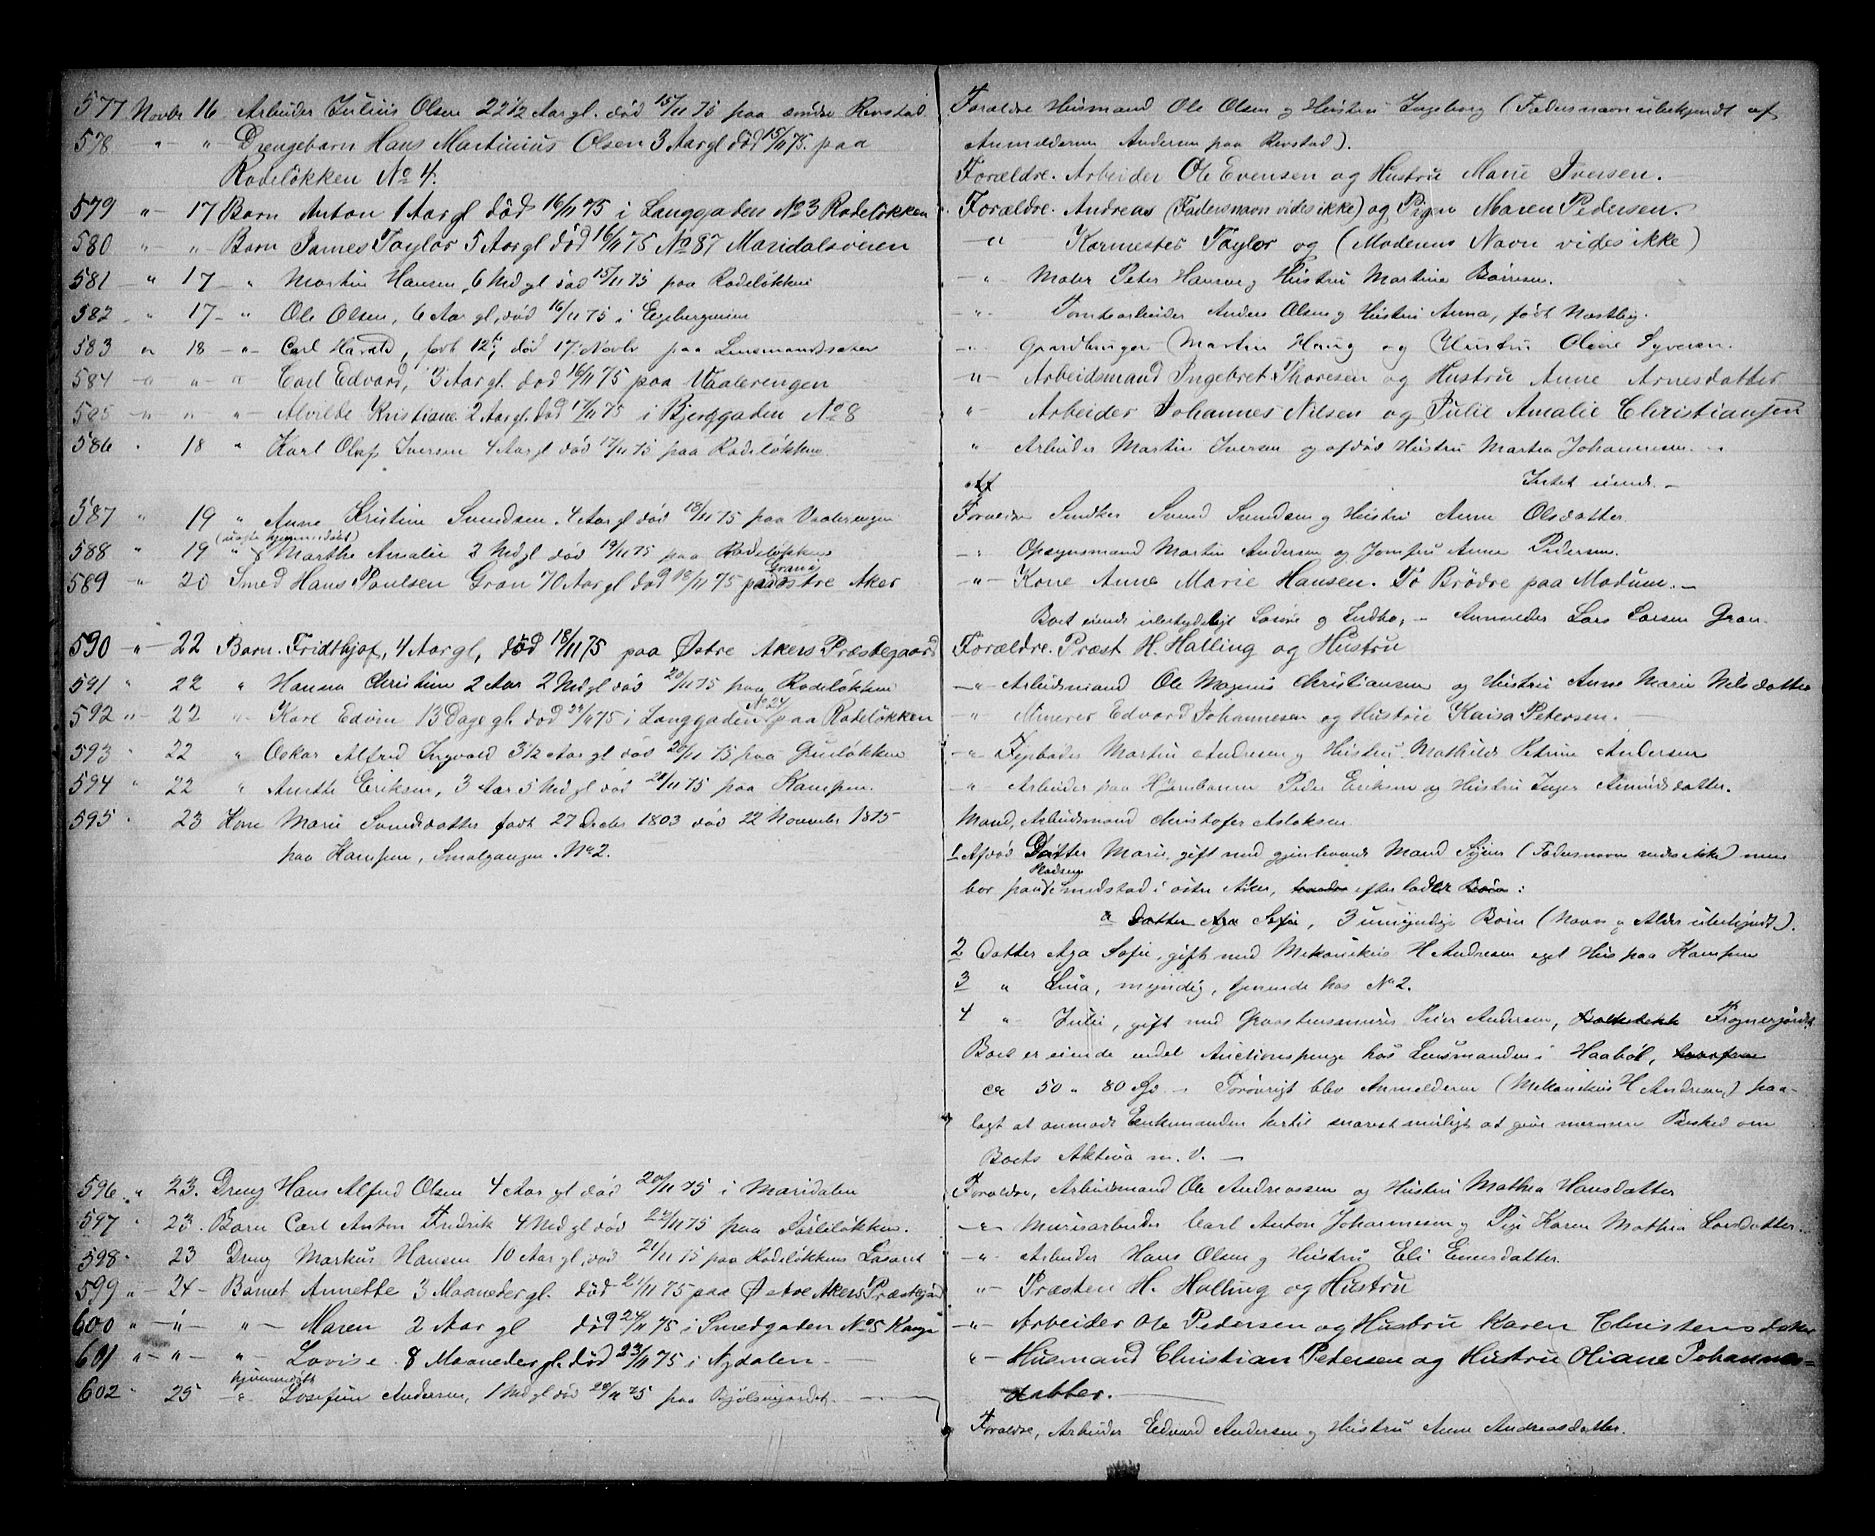 577 Novbr 16 Arbeider Julius Olsen 22 1/2 Aar gl. død 15/11 75 paa søndre Revstad
578 " " Drengebarn Hans Martinius Olsen 3 Aar gl død 15/11 75. paa
Rodeløkken No 4.
579 " 17 Barn Anton 1 Aar gl død 16/11 75 i Langgaden No 3 Rodeløkken
580 " " Barn James Taylor 5 Aar gl død 16/11 75 No 87 Maridalsveien
581 " 17 " Martin Hansen, 6 Md gl død 15/11 75 paa Rodeløkken
582 " 17 " Ole Olsen, 6 Aar gl, død 16/11 75 i Egebergveien
583 " 18 " Carl Harald, født 12te, død 17 Novbr paa Lensmandssæter
584 " " " Carl Edvard, 3 Aar gl, død 16/11 75 paa Vaalerengen
585 " " " Alvilde Kristiane 2 Aar gl. død 17/11 75 i Bjerggaden No 8
586 " 18 " Karl Olaf Iversen 4 Aar gl død 17/11 75 paa Rodeløkken.
587 " 19 " Anne Kristine Svendsen 4 Aar gl død 18/11 75 paa Vaalerengen
(uægte hjemmedøbt)
588 " 19 " Marthe Amalie 2 Md gl død 19/11 75 paa Rodeløkken
589 " 20 Smed Hans Poulsen Gran 70 Aar gl død 18/11 75 paa Grana østre Aker
590 " 22 Barn Fridthjof, 4 Aar gl, død 18/11 75 paa Østre Akers Præstegaard
591 " 22 " Hanna Christine 2 Aar 2 Md gl død 20/11 75 paa Rodeløkken
592 " 22 " Karl Edvin 13 Dage gl død 21/11 75 i Langgaden No 24 paa Rodeløkken
593 " 22 " Oskar Alfred Ingvald 3 1/2 Aar gl død 20/11 75 paa
594 " 22 " Anette Eriksen, 3 Aar 5 Md gl død 21/11 75 paa Kampen.
595 " 23 Kone Marie Svendsdatter født 27 Decbr 1803 død 22 November 1875
paa Kampen, Smalgangen No 2.
596 " 23. Dreng Hans Alfred Olsen 4 Aar gl død 20/11 75 i Maridalen
597 " 23. Barn Carl Anton Fredrik 4 Md gl død 21/11 75 paa
598 " 23 Dreng Markus Hansen 10 Aar gl, død 21/11 75 paa Rodeløkkens Lasaret
599 " 24 Barnet Annette 3 Maaneder gl. død 21/11 75 paa Østre Akers Præstegård
600 " " " Maren 2 Aar gl død 24/11 75 i Smedgaden No 5
601 " " " Lovise 8 Maaneder gl. død 23/11 75 i Nydalen
hjemmedøbt
602 " 25 " Josefine Andersen, 1 Md gl død 20/11 75 paa Bjølsenjordet
Forældre Husmand Ole Olsen og Hustru Ingeborg (Fadersnavn ubekjendt af
Anmelderen Andersen paa Revstad).
Forældre. Arbeider Ole Evensen og Hustru Marie Iversen.
Forældre. Andreas (Fadersnavn vides ikke) og Pigen Maren Pedersen.
" Kormester Taylor og (Moderens Navn vides ikke)
" Maler Peter Hansen og Hustru Martine Børresen.
" Tomtearbeider Anders Olsen og Hustru Anna, født Næstby.
" Gaardbruger Martin Haug og Hustru Oline Syversen.
" Arbeidsmand Ingebret Thoresen og Hustru Anne Arnesdatter
" Arbeider Johannes Nilsen og Julie Amalie Christiansen
" Arbeider Martin Iversen og afdød Hustru Marthea Johannesen.
Intet eiende.
Forældre Svend Svendsen og Hustru Anne Olsdatter.
" Opsynsmand Martin Andersen og Jomfru Anne Pedersen.
" Kone Anne Marie Hansen. To Brødre paa Modum.
Boet eiende ubetydeligt Løsøre og Indbo, Anmelder Lars Larsen Gran.
Forældre. Præst H. Halling og Hustru
" Arbeidsmand Ole Magnus Christiansen og Hustru Anne Marie Nilsdatter
" Minerer Edvard Johannesen og Hustru Kaisa Petersen.
" Fyrbøder Martin Andersen og Hustru Mathilde Petrine Andersen
" Arbeider paa Hjernbanen Peder Eriksen og Hustru Inger Amundsdatter.
Mand, Arbeidsmand Christofer Aslaksen
1 Afdød Datter Marie, gift med gjenlevende Mand (Fadersnavn vides ikke) men
bor paa Smedstad i østre Aker, efterladt Børn:
Datter Aga Sofie, 3 umyndige Børn (Navn og Alder ubekjendt).
2 Datter Aga Sofie, gift med Mekanikus H Andresen eget Hus paa Kampen
3 " Lina, myndig, tjenende hos No 2.
4 " Julie, gift med Peter Andersen, Frognerjordet
Boet er eiende endel Auctionspenge hos Lensmanden i Haabøl,
ca 50 a 80 Spd. Forøvrigt blev Anmelderen (Mekanikus H Andresen) paa-
lagt at anmode Enkemanden hertil snarest muligt at give nærmere Besked om
Boets Aktiva m. V.
Forældre, Arbeidsmand Ole Andreassen og Hustru Mathea Hansdatter
" Murerarbeider Carl Anton Johannesen og Pige Karen Mathea Larsdatter.
" Arbeider Hans Olsen og Hustru Eli Einersdatter.
" Præsten H. Halling og Hustru
" Arbeider Ole Pedersen og Hustru Karen Christensdatter
" Husmand Christian Petersen og Hustru Oliane Johannes-
datter.
Forældre, Arbeider Edvard Andersen og Hustru Anne Andreasdatter.